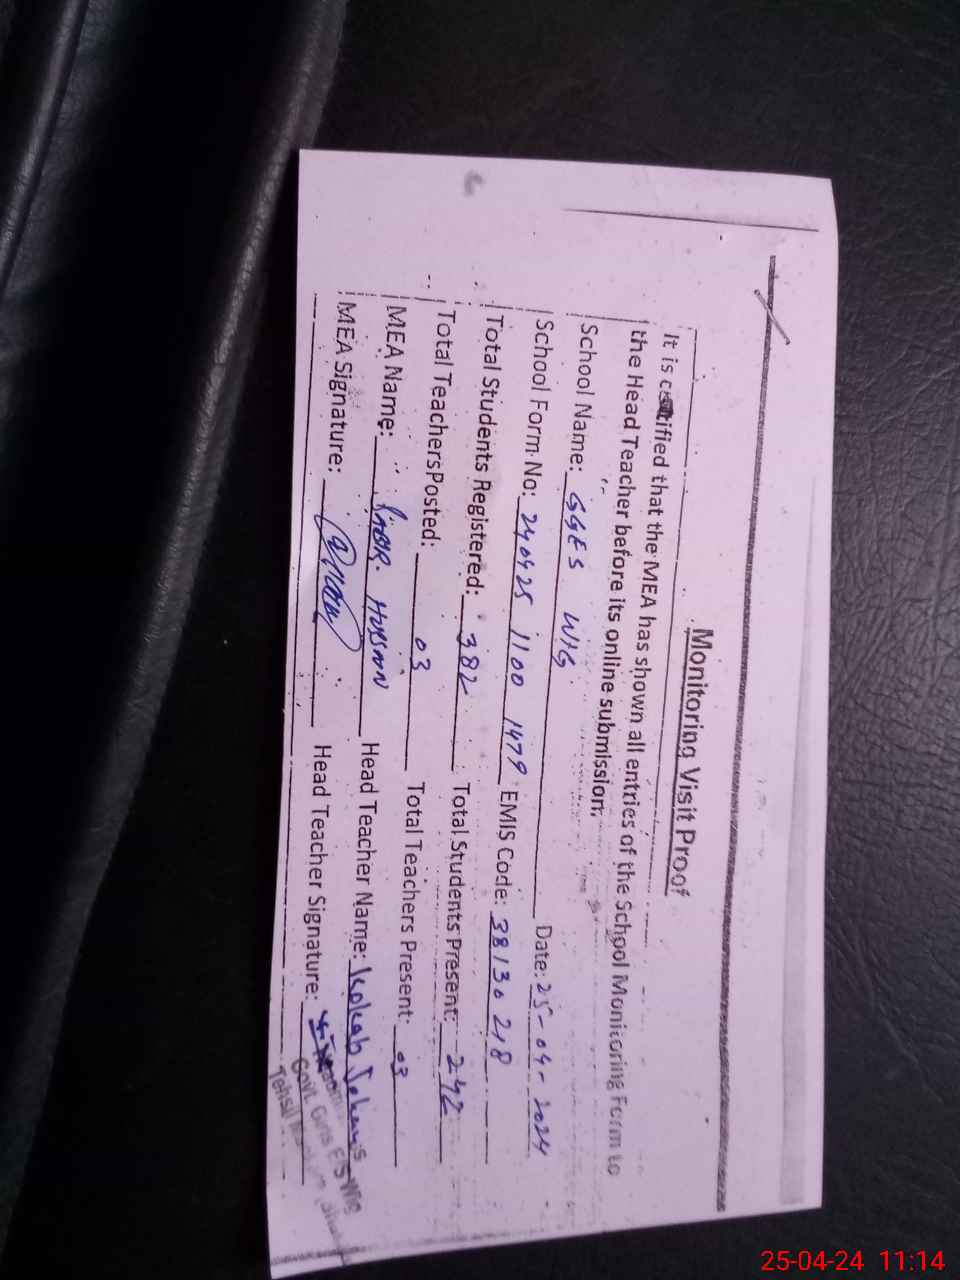 Monitoring Visit Proof
It is certified that the MEA has shown all entries of the School Monitoring Form to
the Head Teacher before its online submission.
School Name: GGES WIG Date: 25-04-2024
School Form No: 240425 1100 1479 EMIS Code: 38130218
Total Students Registered: 382 Total Students Present: 242
Total Teachers Posted: 03 Total Teachers Present: 03
MEA Name: Head Teacher Name: Kokab
MEA Signature: Head Teacher Signature:
Govt. Girls E/S Wig
Tehsil
25-04-24 11:14